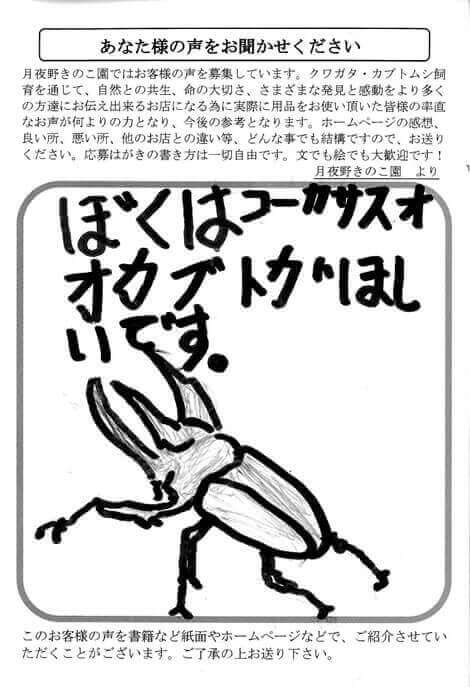 あなた様の声をお聞かせください
月夜野きのこ園ではお客様の声を募集しています。クワガタ・カブトムシ飼
育を通じて、自然との共生、命の大切さ、さまざまな発見と感動をより多く
の方達にお伝え出来るお店になる為に実際に用品をお使い頂いた皆様の率直
なお声が何よりの力となり、今後の参考となります。ホームページの感想、
良い所、悪い所、他のお店との違い等、どんな事でも結構ですので、お送り
ください。応募はがきの書き方は一切自由です。文でも絵でも大歓迎です！
月夜野きのこ園　より
ぼくはコーカサスオ
オカブトガほし
いです。
このお客様の声を書籍など紙面やホームページなどで、ご紹介させてい
ただくことがございます。ご了承の上お送り下さい。